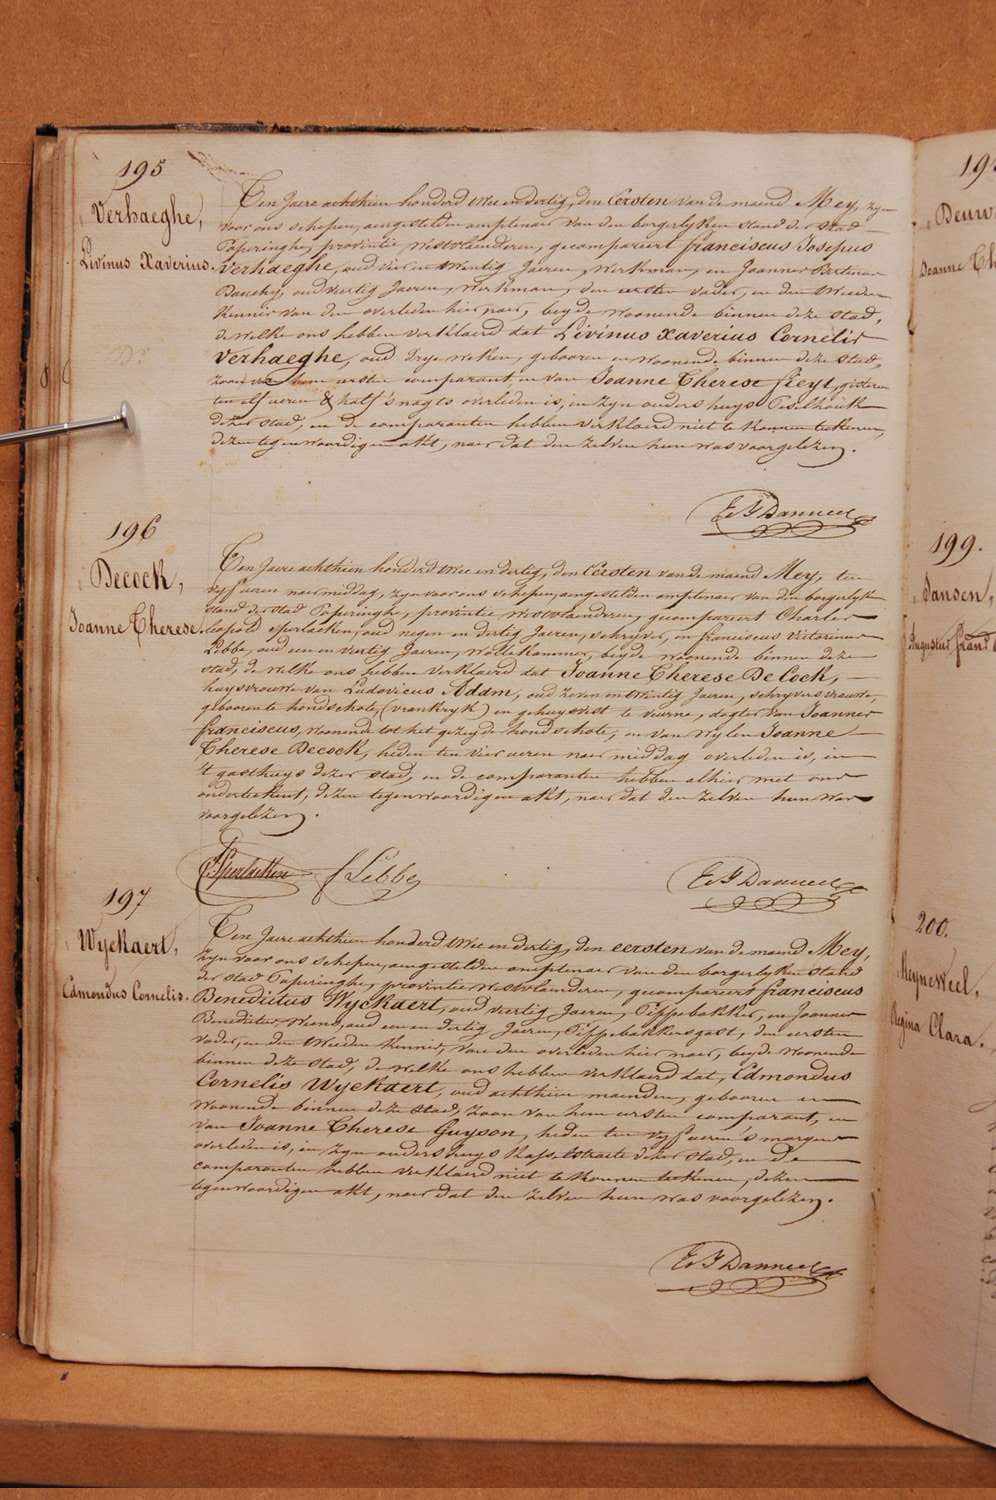 195
Verhaeghe,
Livinus Xaverius.
Ten Jaere achthien honderd twee en dertig, den Eersten van de maend Mey, zyn
voor ons schepen, aengestelden amptenaer van den borgerlyken stand der stad
Poperinghe, provintie Westvlaenderen, gecompareert franciscus Josephus
Verhaeghe, oud vier en twintig Jaeren, Werkman, en Joannes
oud veertig Jaeren, Werkman, den eersten vader, en den tweeden
kennis van den overleden hier naer, beyde woonende binnen deze stad,
de welke ons hebben verklaerd dat Livinus Xaverius Cornelis
Verhaeghe, oud drye weken, gebooren en woonende binnen deze stad,
zoon van hem eersten comparant, en van Joanne Therese Feyt, gisteren
ten elf ueren & half 's nagts overleden is, in zyn ouders huys
dezer stad, en de comparanten hebben verklaerd niet te konnen teekenen,
dezen tegenwoordigen akt, naer dat den zelven hun was voorgelezen.
196
Decock,
Joanne Therese.
Ten Jaere achthien honderd twee en dertig, den Eersten van de maend Mey, ten
vyf ueren naermiddag, zyn voor ons schepen, aengestelden amptenaer van den borgerlyken
stand der stad Poperinghe, provintie Westvlaenderen, gecompareert Charles
Leopold Sperlaeken, oud negen en dertig Jaeren, schryver, en franciscus Victorinus
Lebbe, oud een en veertig Jaeren, Wollekammer, beyde woonende binnen deze
stad, de welke ons hebben verklaerd dat Joanne Therese De Cock,
huysvrouwe van Ludovicus Adam, oud zeven en twintig Jaeren, schryversvrouwe,
geboren te hondschote, (vrankryk) en gehuysvest te veurne, dogter van Joannes
franciscus, woonende tot het gezeyde hondschote, en van wylen Joanne
Therese Decock, heden ten vier ueren naer middag overleden is, in
't gasthuys dezer stad, en de comparanten hebben alhier met ons
onderteekent, dezen tegenwoordigen akt, naer dat den zelven hun was
voorgelezen.
Sperlaeken f Lebbe
197
Wyckaert,
Edmondus Cornelis.
Ten Jaere achthien honderd twee en dertig, den eersten van de maend Mey,
zyn voor ons schepen, aengestelden amptenaer van den borgerlyken stand
der stad Poperinghe, provintie Westvlaenderen, gecompareert franciscus
Benedictus Wyckaert, oud veertig Jaeren, en Joannes
Benedictus oud een en dertig Jaeren, den eersten
vader, en den tweeden kennis, van den overleden hier naer, beyde woonende
binnen deze stad, de welke ons hebben verklaerd dat, Edmondus
Cornelis Wyckaert, oud achthien maenden, gebooren en
woonende binnen deze stad, zoon van hem eersten comparant, en
van Joanne Therese Guyson, heden ten vyf ueren 's morgens
overleden is, in zyn ouders huys dezer stad, en de
comparanten hebben verklaerd niet te konnen teekenen, dezen
tegenwoordigen akt, naer dat den zelven hun was voorgelezen.
199.
Jansen,
200.
Meyneweel,
Regina Clara.